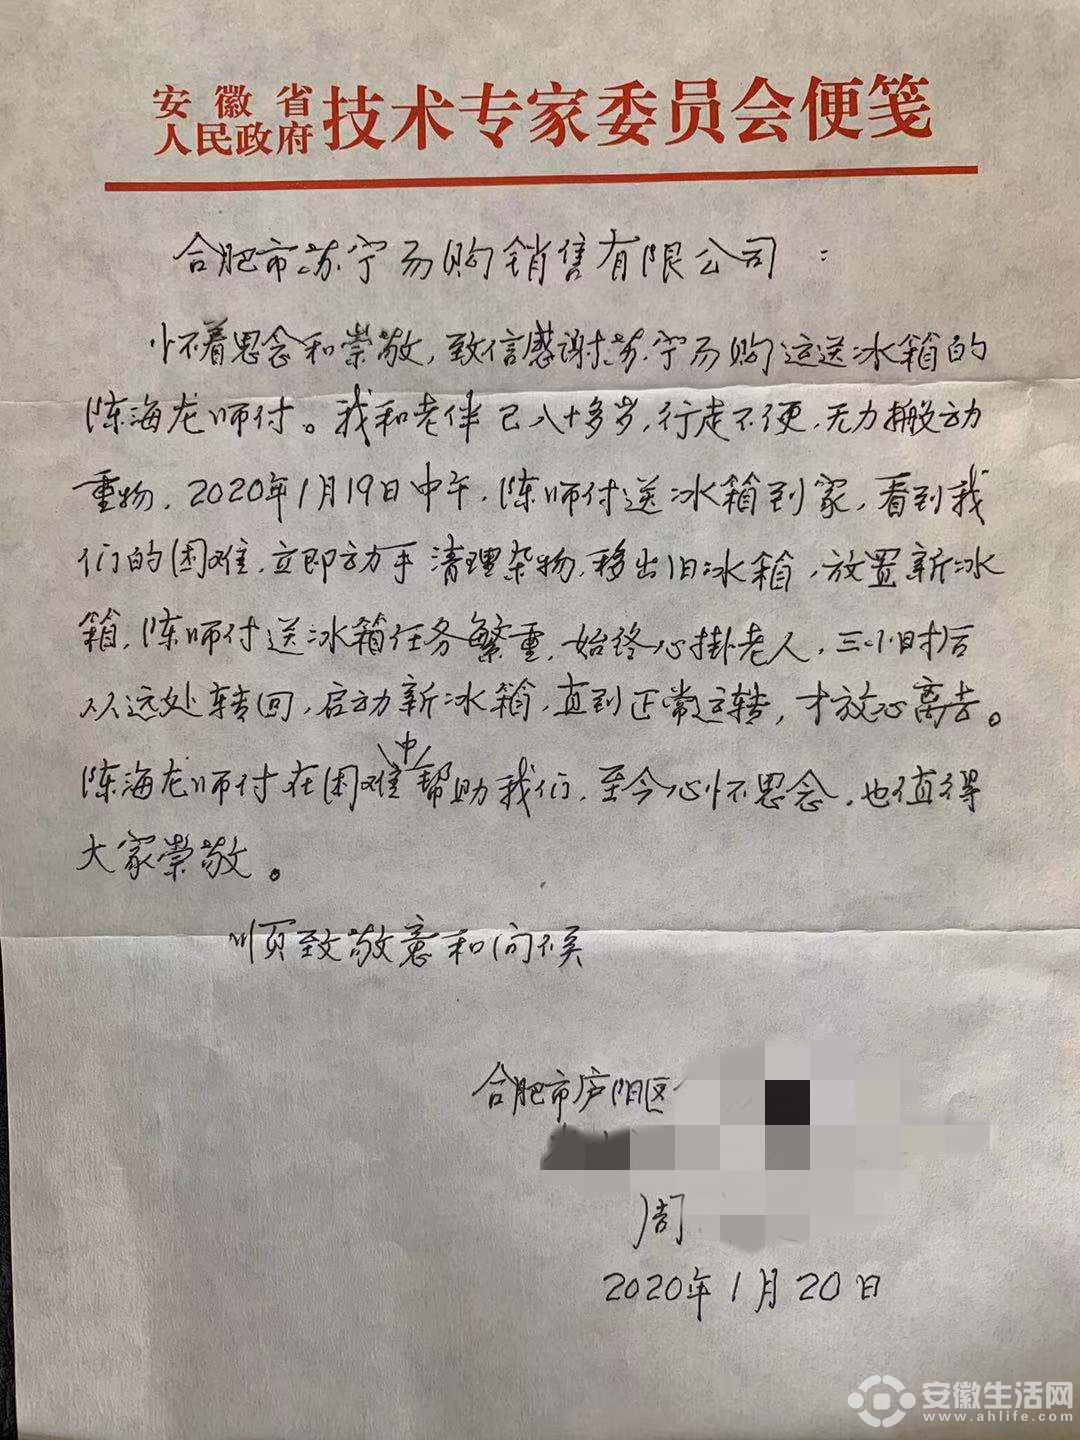 安徽省
人民政府 技术专家委员会便笺
合肥市苏宁易购销售有限公司：
怀着思念和崇敬，致信感谢苏宁易购运送冰箱的
陈海龙师付。我和老伴已八十多岁，行走不便，无力搬动
重物，2020年1月19日中午，陈师付送冰箱到家，看到我
们的困难，立即动手清理杂物，移出旧冰箱，放置新冰
箱，陈师付送冰箱任务繁重，始终心掛老人，三小时后
从远处转回，启动新冰箱，直到正常运转，才放心离去。
陈海龙师付在困难中帮助我们，至今心怀思念，也值得
大家崇敬。
顺致敬意和问候
合肥市庐阳区
周
2020年1月20日
安徽生活网
www.ahlife.com